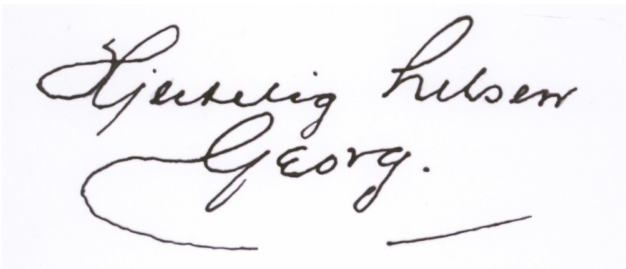 Hjertelig hilsen
Georg.